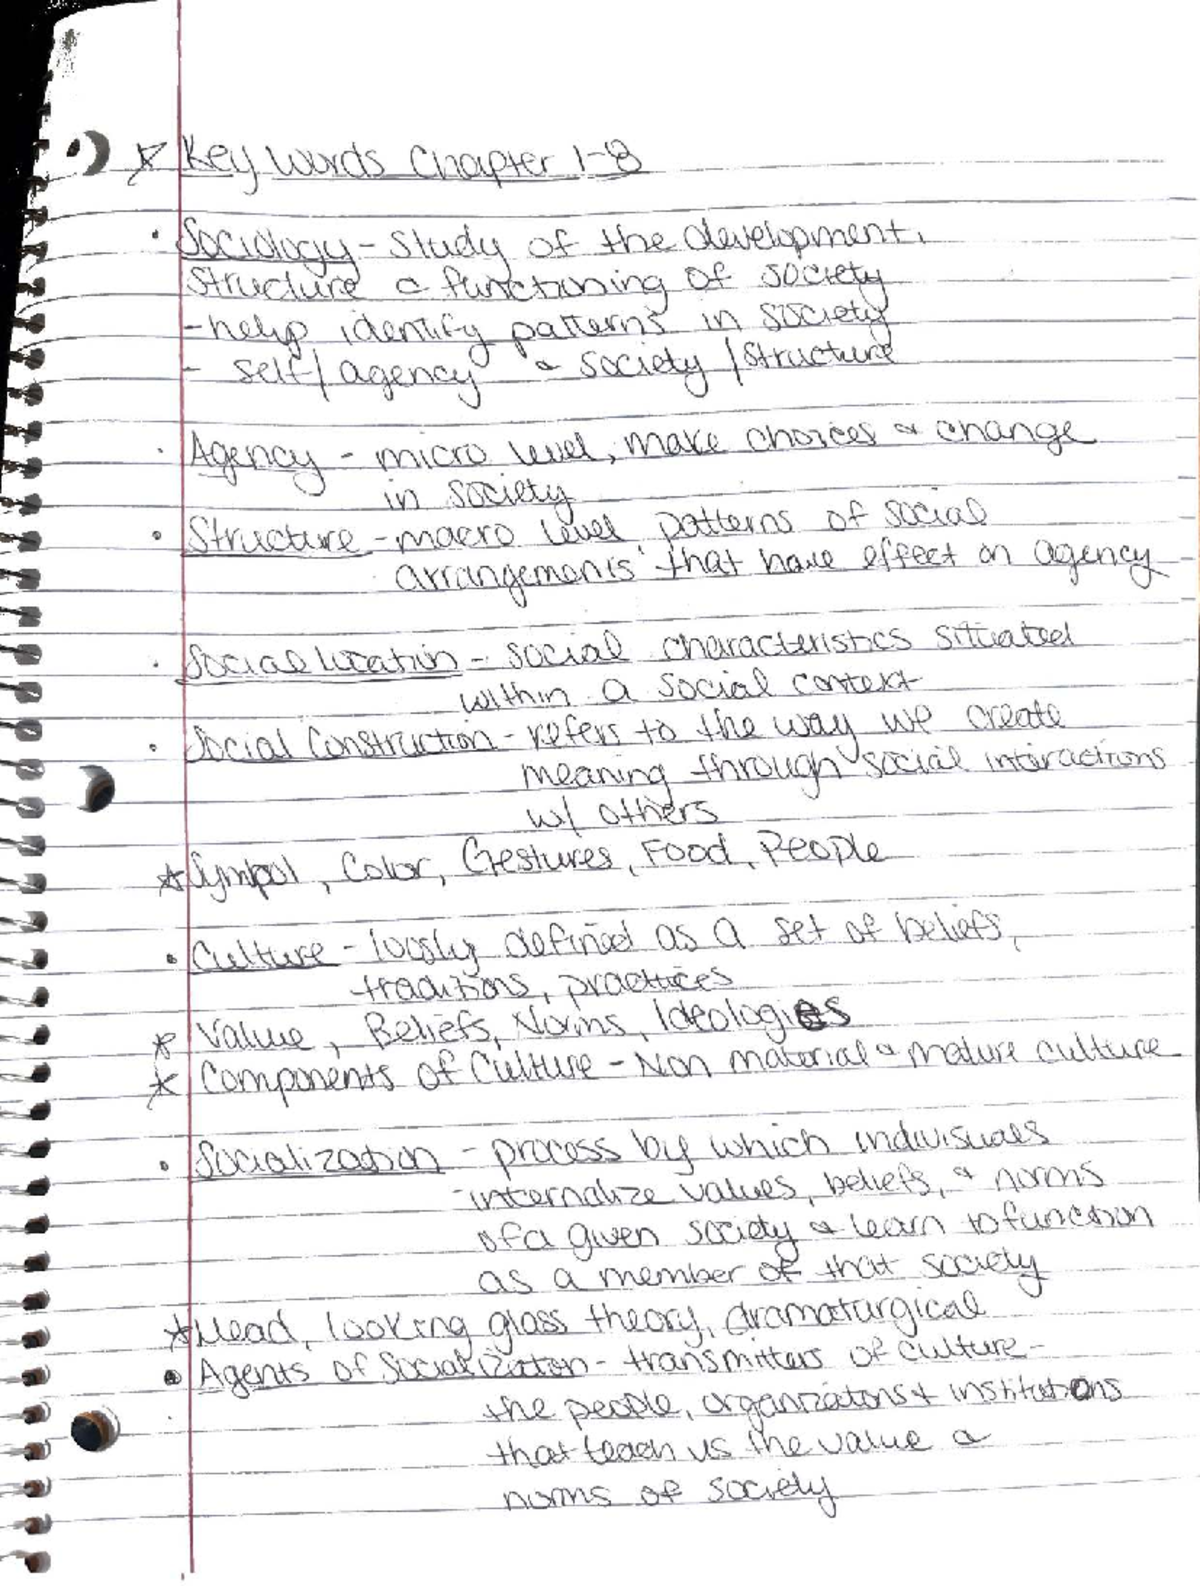 ☆ Key Words Chapter 1-8
• Sociology - Study of the development,
Structure & functioning of society
- help identify patterns in society
- self/agency & society/structure
• Agency - micro level, make choices & change
in society
• Structure - macro level patterns of social
arrangements that have effect on agency
• Social location - social characteristics situated
within a social context
• Social Construction - refers to the way we create
meaning through social interactions
w/ others
☆ Symbol, Color, Gestures, Food, People
• Culture - loosly defined as a set of beliefs,
traditions, practices
☆ Value, Beliefs, Norms, Ideologies
☆ Components of Culture - Non material & mature culture
• Socialization - process by which indivisuals
internalize values, beliefs, & norms
of a given society & learn to function
as a member of that society
☆ Mead, looking glass theory, dramaturgical
• Agents of Socialization - transmitters of culture -
the people, organizations & institutions
that teach us the value &
norms of society